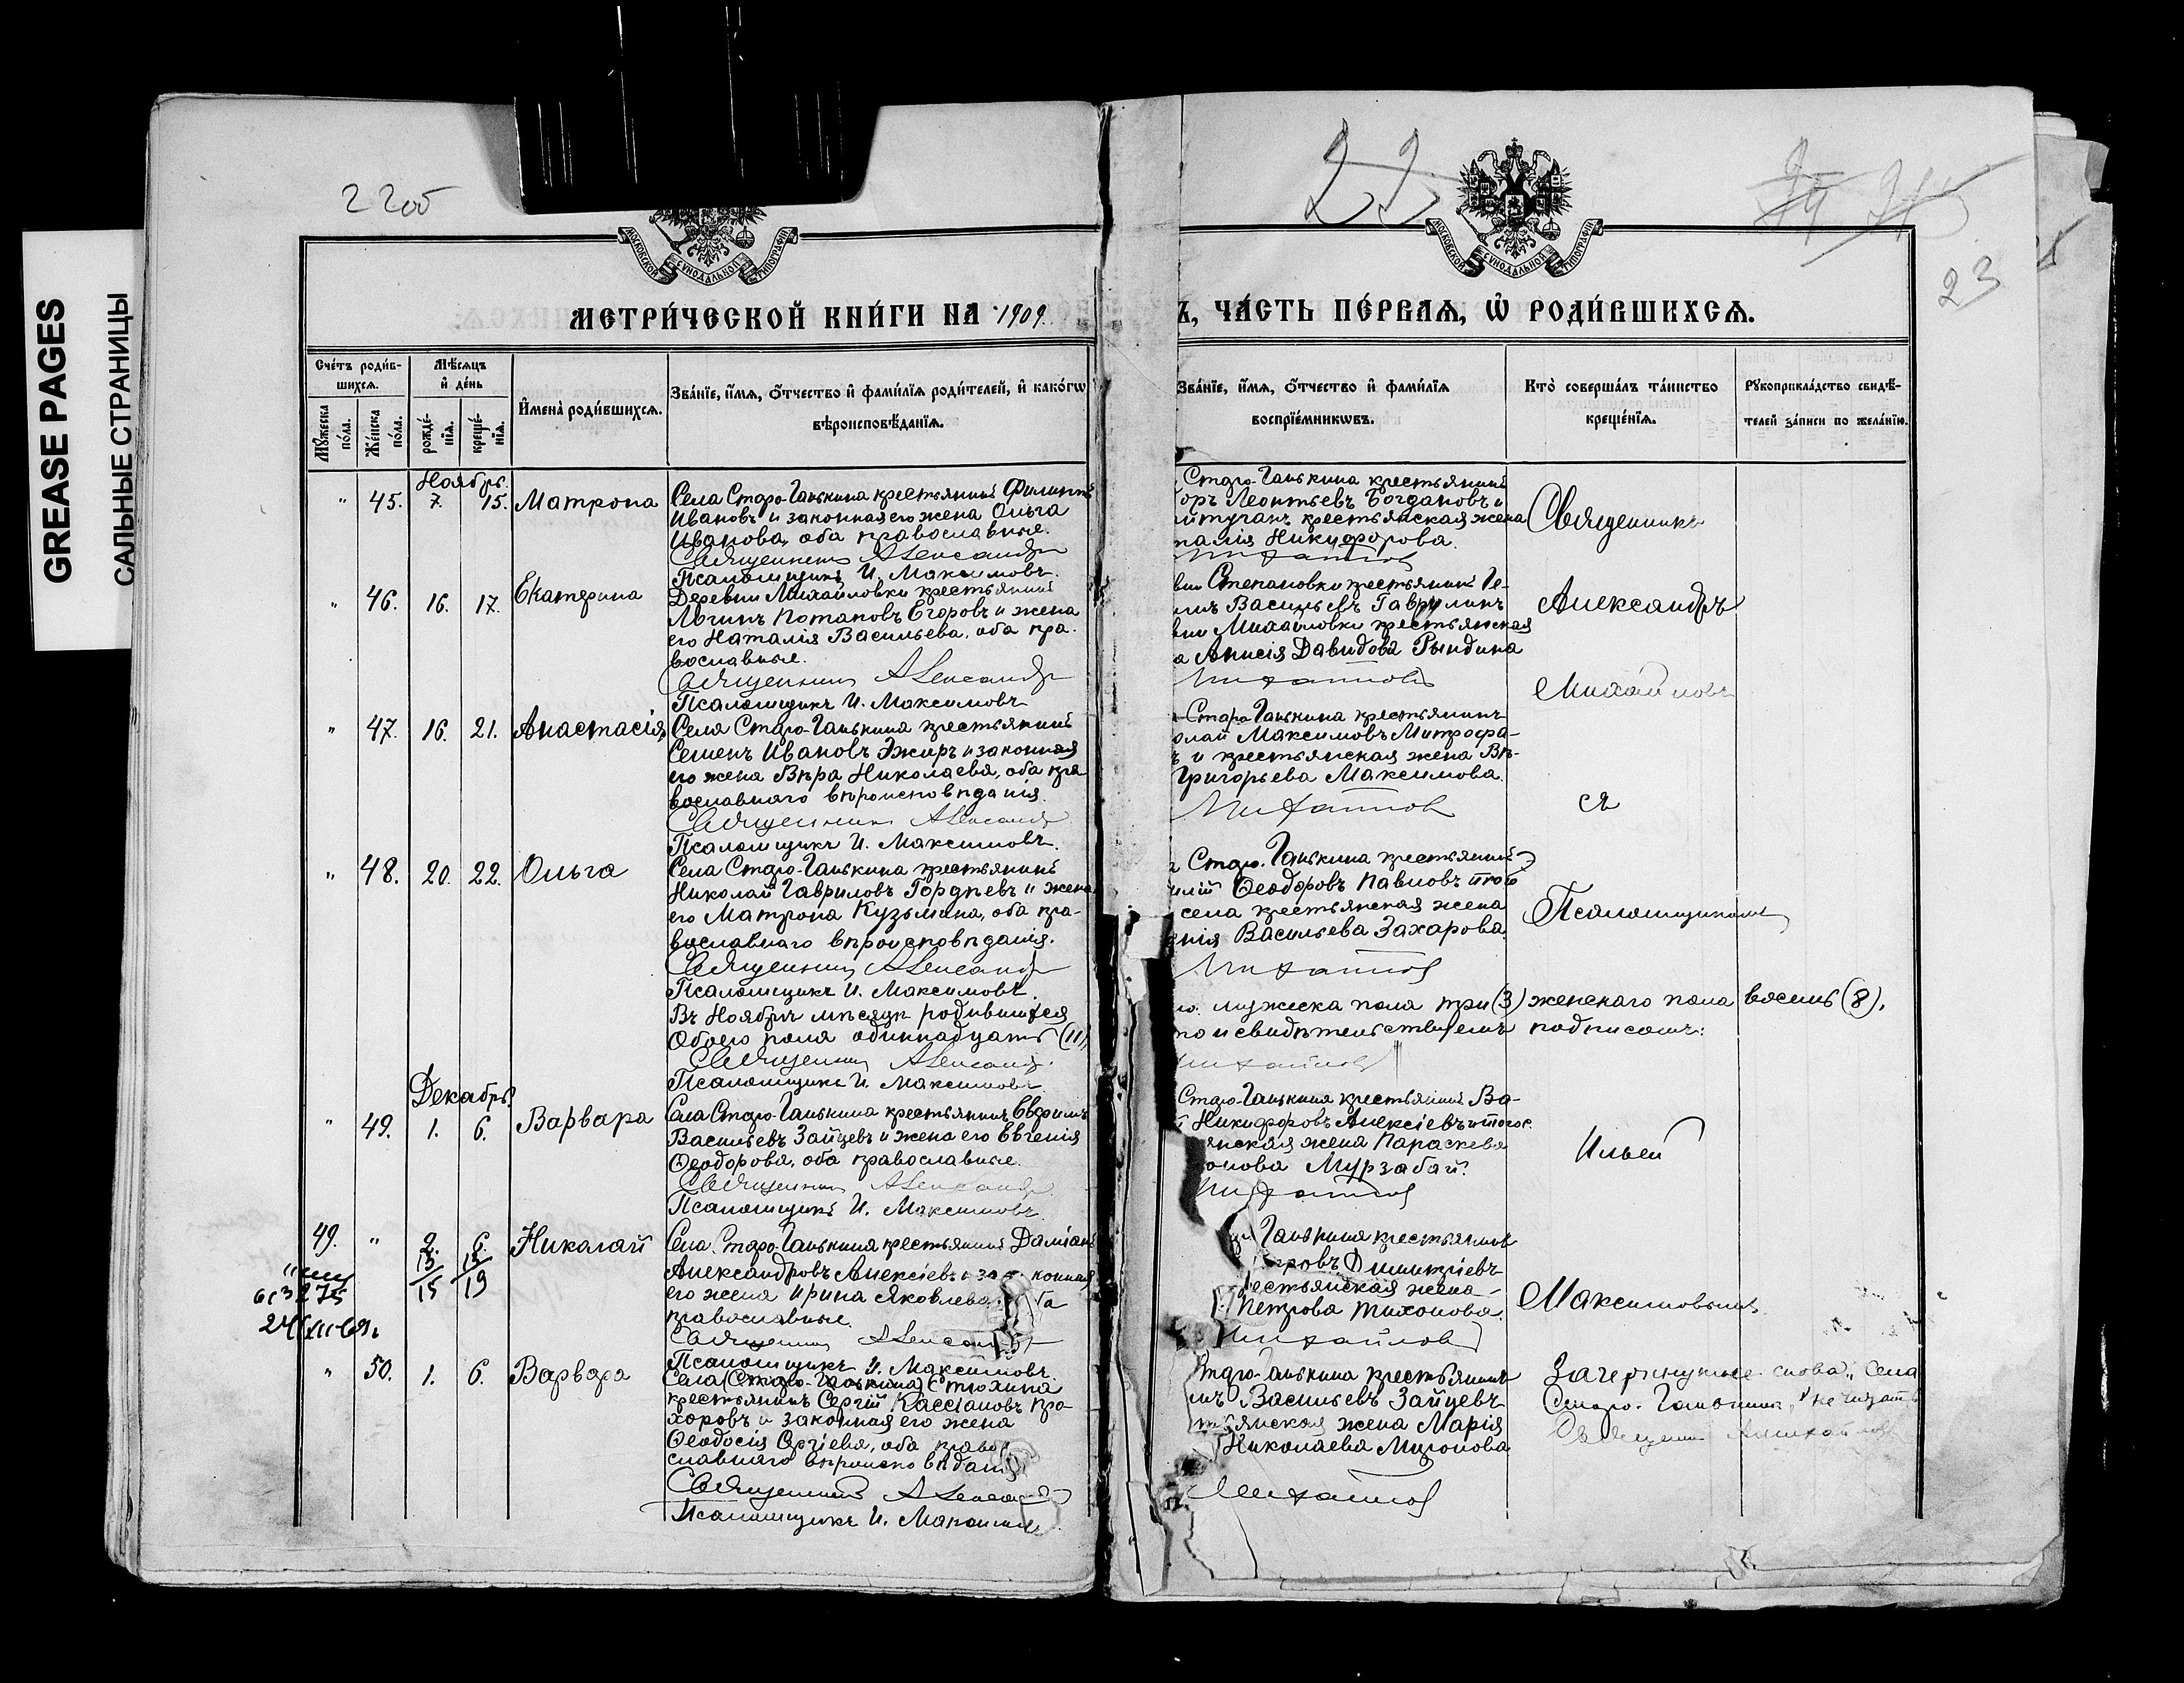 GREASE PAGES
САЛЬНЫЕ СТРАНИЦЫ
22об
22
23
МОСКОВСКОЙ СѴНОДАЛЬНОЙ ТИПОГРАФІИ
МОСКОВСКОЙ СѴНОДАЛЬНОЙ ТИПОГРАФІИ
МЕТРИ́ЧЕСКОЙ КНИ́ГИ НА 1909
Ъ, ЧА́СТЬ ПЕ́РВАѦ, Ѽ РОДИ́ВШИХСѦ.
Сче́тъ роди́в-
шихсѧ.
Мꙋжеска по́ла.
Же́нска по́ла.
Мѣ́сѧцъ
и҆ де́нь
рожде́-
нїѧ.
креще́-
нїѧ.
И҆мена̀ роди́вшихсѧ.
Зва́нїе, и҆́мѧ, ѻ҆́тчество и҆ фами́лїѧ роди́телей, и҆ како́гѡ
вѣроисповѣ́данїѧ.
Зва́нїе, и҆́мѧ, ѻ҆́тчество и҆ фами́лїѧ
воспрїе́мникѡвъ.
Кто̀ соверша́лъ та́инство
креще́нїѧ.
Рꙋкоприкла́дство свидѣ́-
телей за́писи по жела́нїю.
Ноябрь.
" 45. 7. 15. Матрона
Села Старо-Ганькина крестьянинъ Филиппъ
Ивановъ и законная его жена Ольга
Иванова, оба православные.
Священникъ Александръ
Псаломщикъ И. Максимовъ.
Старо-Ганькина крестьянинъ
оръ Леонтьевъ Богдановъ и
крестьянская жена
талія Никифорова.
Михайлов
Священникъ
" 46. 16. 17. Екатерина
Деревни Михайловки крестьянинъ
Логинъ Потаповъ Егоровъ и жена
его Наталія Васильева, оба пра-
вославные.
Священникъ Александръ
Псаломщикъ И. Максимовъ
вни Степановки крестьянинъ Ге-
Васильевъ Гаврилинъ
вни Михайловки крестьянская
а Анисія Давидова Рындина
Михайловъ
Александръ
Михайловъ
" 47. 16. 21. Анастасія,
Села Старо-Ганькина крестьянинъ
Семенъ Ивановъ Эжиръ и законная
его жена Вѣра Николаева, оба пра
вославнаго вѣроисповѣданія.
Священникъ Александръ
Псаломщикъ И. Максимовъ.
Старо Ганькина крестьянинъ
олай Максимовъ Митрофа-
ъ и крестьянская жена Вѣ-
Григорьева Максимова.
Михайлов
съ
" 48. 20. 22. Ольга
Села Старо-Ганькина крестьянинъ
Николай Гавриловъ Гордѣевъ и жена
его Матрона Кузьмина, оба пра-
вославнаго вѣроисповѣданія.
Священникъ Александръ
Псаломщикъ И. Максимовъ.
Старо-Ганькина крестьянинъ
илій Ѳеодоровъ Павловъ и того
села крестьянская жена
енія Васильева Захарова.
Михайлов
Псаломщикомъ
Въ Ноябрѣ мѣсяцѣ родившихся
Обоего пола одиннадцать (11)
Священникъ Александръ
Псаломщикъ И. Максимовъ
мужеска пола три (3) женскаго пола восемь (8).
что и свидѣтельствуемъ подписомъ:
Михайлов
Декабрь
" 49. 1. 6. Варвара
Села Старо-Ганькина крестьянинъ Евфимъ
Васильевъ Зайцевъ и жена его Евгенія
Ѳеодорова, оба православные.
Священникъ Александръ
Псаломщикъ И. Максимовъ
Старо-Ганькина крестьянинъ Ва-
й Никифоровъ Алексіевъ и того с.
янская жена Параскева
онова Мурзабай.
Михайлов
Ильей
49. " 2. 6. Николай
15 19
275
Села Старо-Ганькина крестьянинъ Даміанъ
Александровъ Алексіевъ и законная
его жена Ирина Яковлева, оба
православные.
Священникъ Александръ
Псаломщикъ И. Максимовъ.
Ганькина крестьянинъ
Димитріевъ
рестьянская жена
Петрова Тихонова.
Михайлов
Максимовымъ
" 50. 1. 6. Варвара
Села (Старо-Ганькина) Стюхина
крестьянинъ Сергій Кассіановъ Про-
хоровъ и законная его жена
Ѳеодосія Сергіева, оба право-
славнаго вѣроисповѣданія
Священникъ Александръ
Псаломщикъ И. Максимовъ
Старо-Ганькина крестьянинъ
Васильевъ Зайцевъ
стьянская жена Марія
Николаева Миронова
Михайлов
Зачеркнутые слова „Села
Старо-Ганькина" не читать
Священникъ А. Михайлов